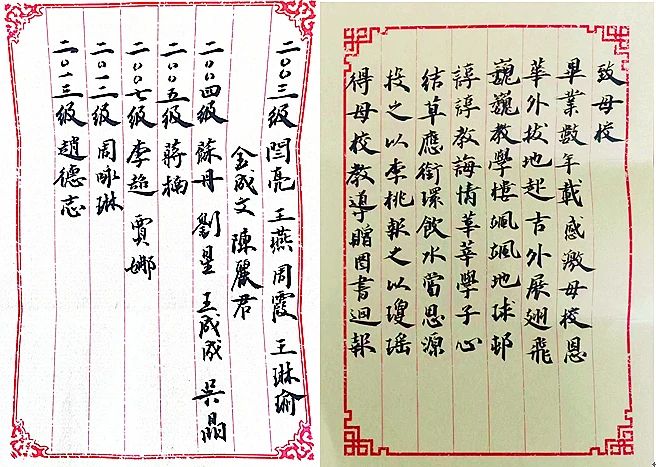 致母校
畢業數年載感激母校恩
華外拔地起吉外展翅飛
巍巍教學樓颯颯地球邨
諄諄教誨情莘莘學子心
結草應銜環飲水當思源
投之以李桃報之以瓊瑤
得母校教導贈图書迴報
二〇〇三級 閆亮 王燕 周霞 王琳瑜
金成文 陳麗君
二〇〇四級 蘇丹 劉星 王成成 吳晶
二〇〇五級 蔣楠
二〇〇七級 李超 賈娜
二〇一二級 周咏琳
二〇一三級 趙德志